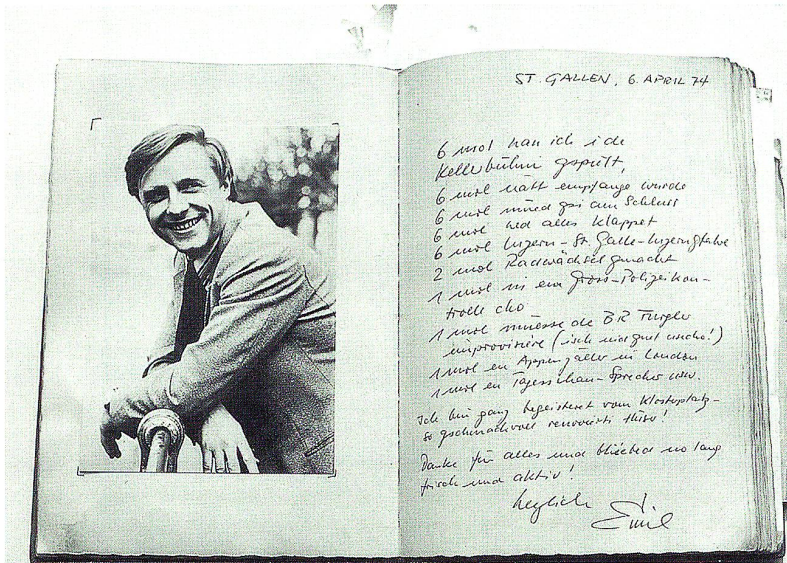 ST. GALLEN, 6. APRIL 74
6 mol han ich i de
Kellerbühni gspielt,
6 mol nätt empfange worde
6 mol müed gsi am Schluss
6 mol hed alles klappet
6 mol Luzern - St. Galle - Luzern gfahre
2 mol Radwächsel gmacht
1 mol in en Gross-Polizeikon-
trolle cho
1 mol müesse de BR Furgler
improvisiere (isch nid guet usecho!)
1 mol en Appenzäller in London
1 mol en Tagesschau-Sprecher usw.
Ich bin ganz begeisteret vom Klosterplatz-
so gschmackvoll renovierti Hüser!
Danke für alles und bliibed no lang
frisch und aktiv!
herzlich Emil